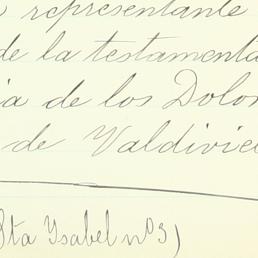 representante
de la testamenta
ia de los Dolor
de Valdivie
Sta Ysabel nº 3)